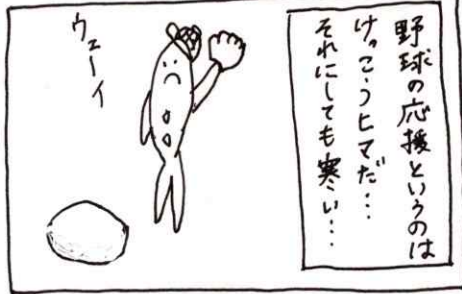 野球の応援というのは
けっこうヒマだ・・・
それにしても寒い・・・
ウェーイ